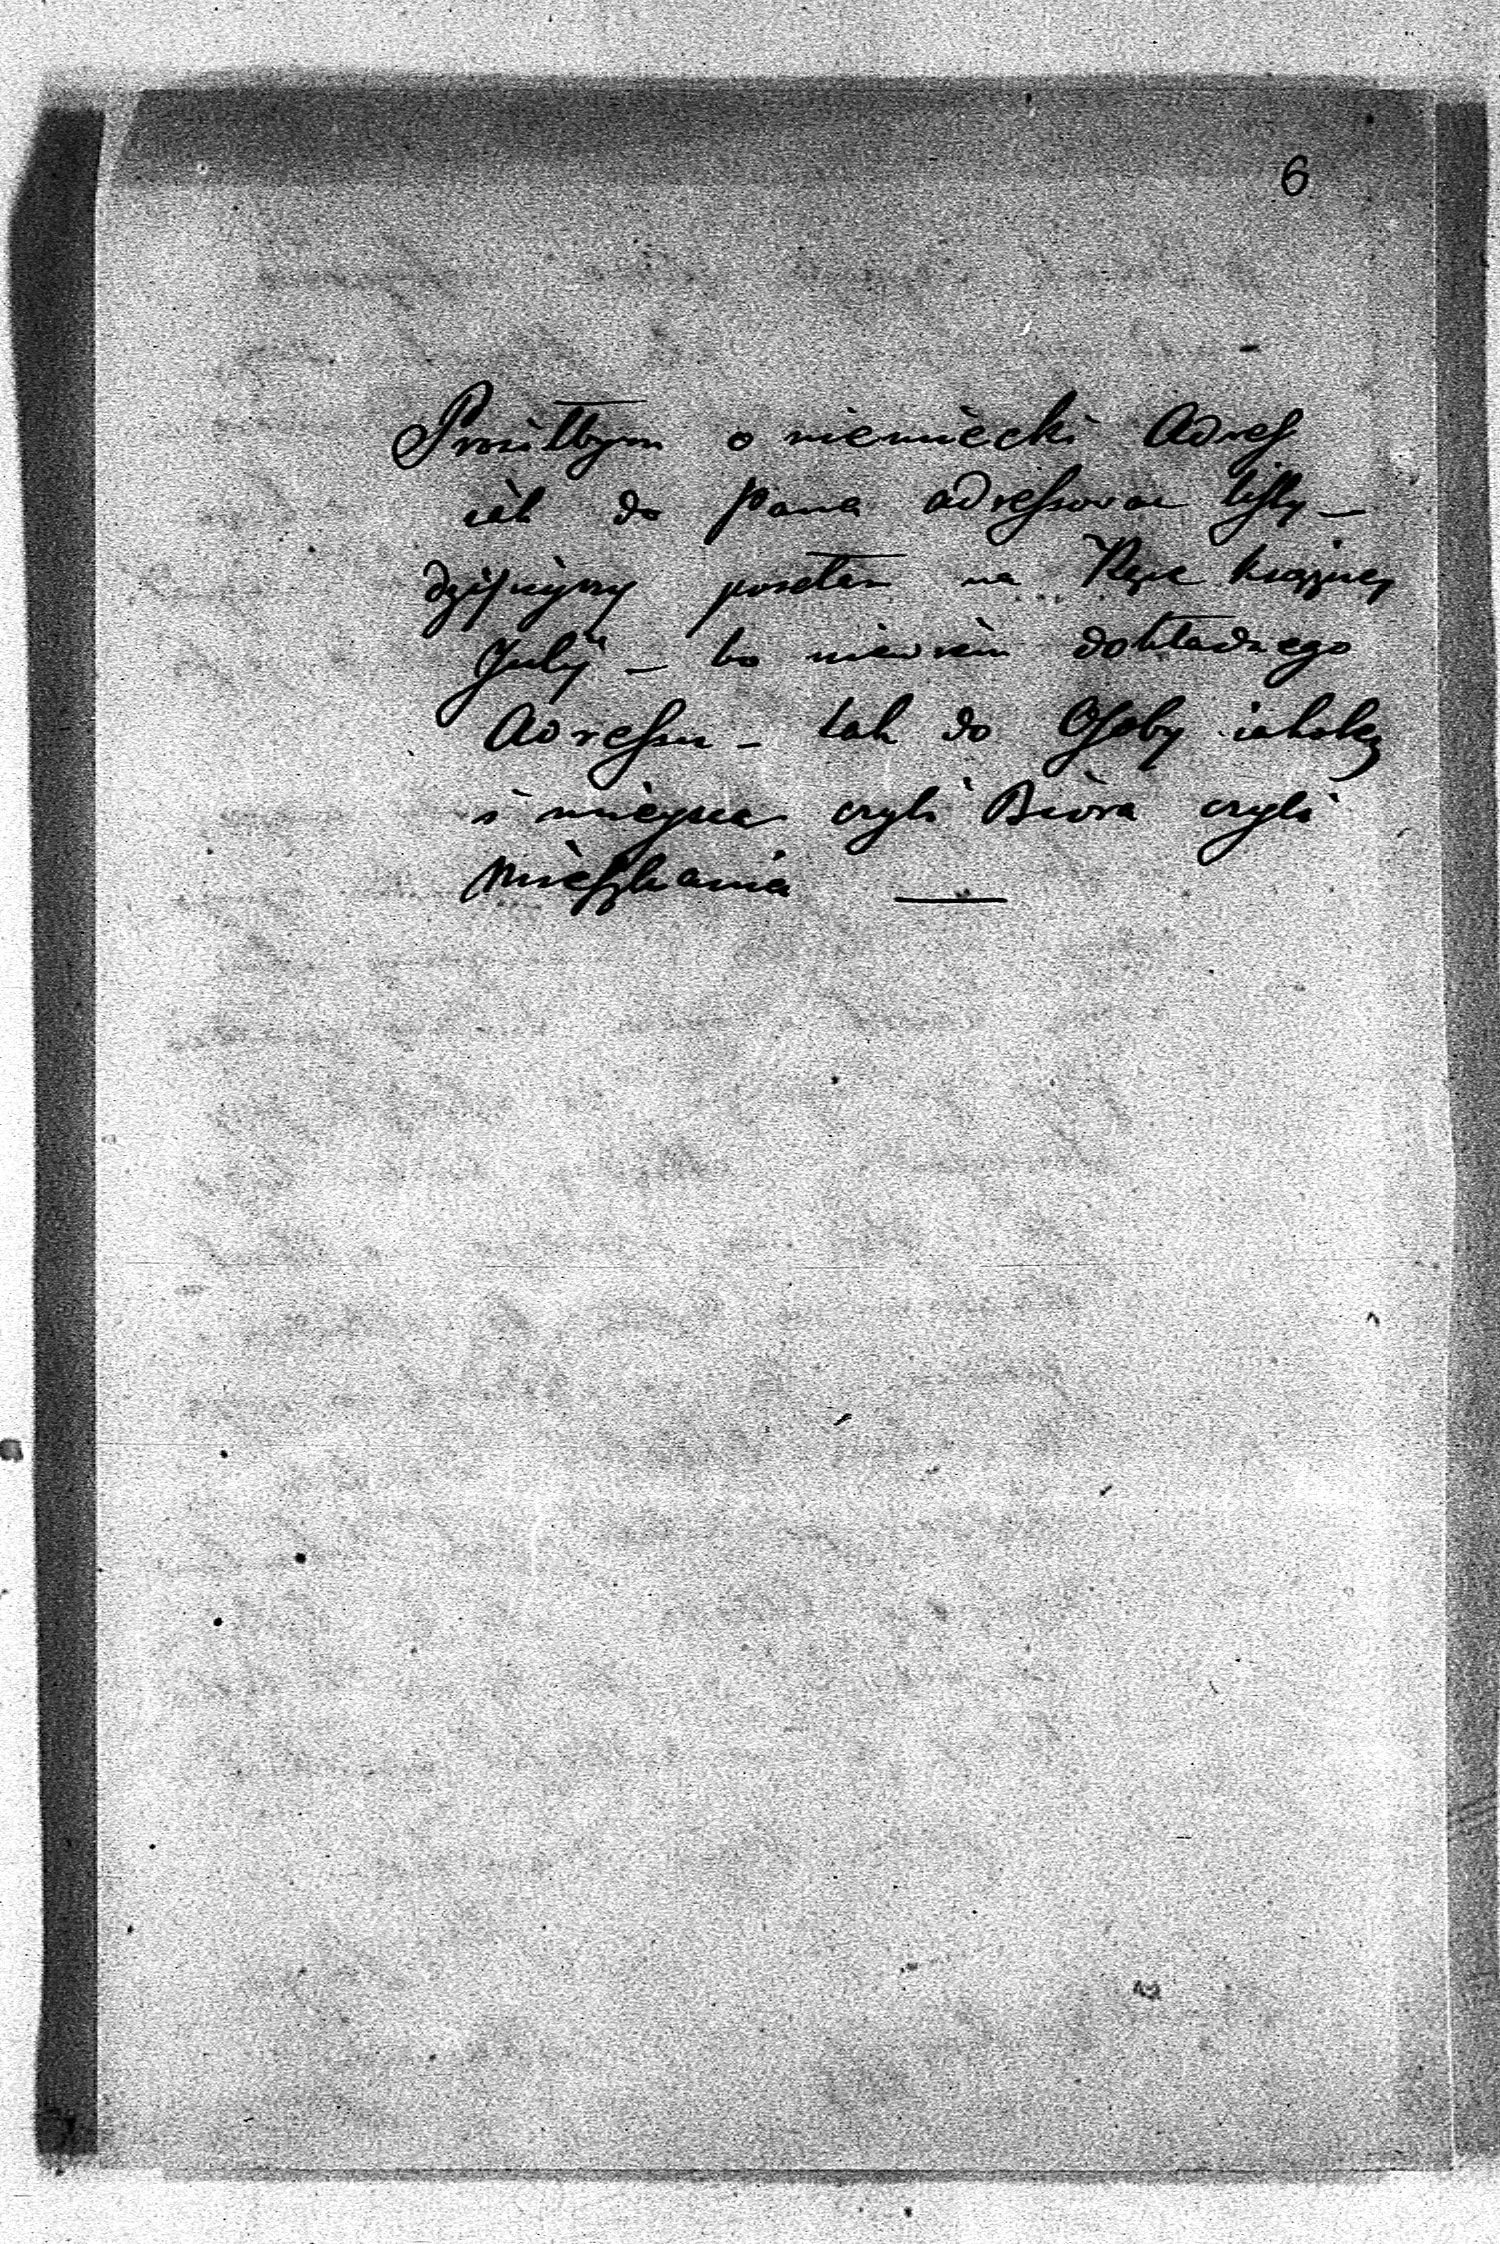 6
Prosiłbym o niemiecki Adress
iak do Pana adressować listy —
dzisieyszy posełam na Ręce księżney
Julij — bo niewiem dokładnego
Adressu — tak do Osoby iakotez
i mieysca czyli Biora czyli
Mieszkania —